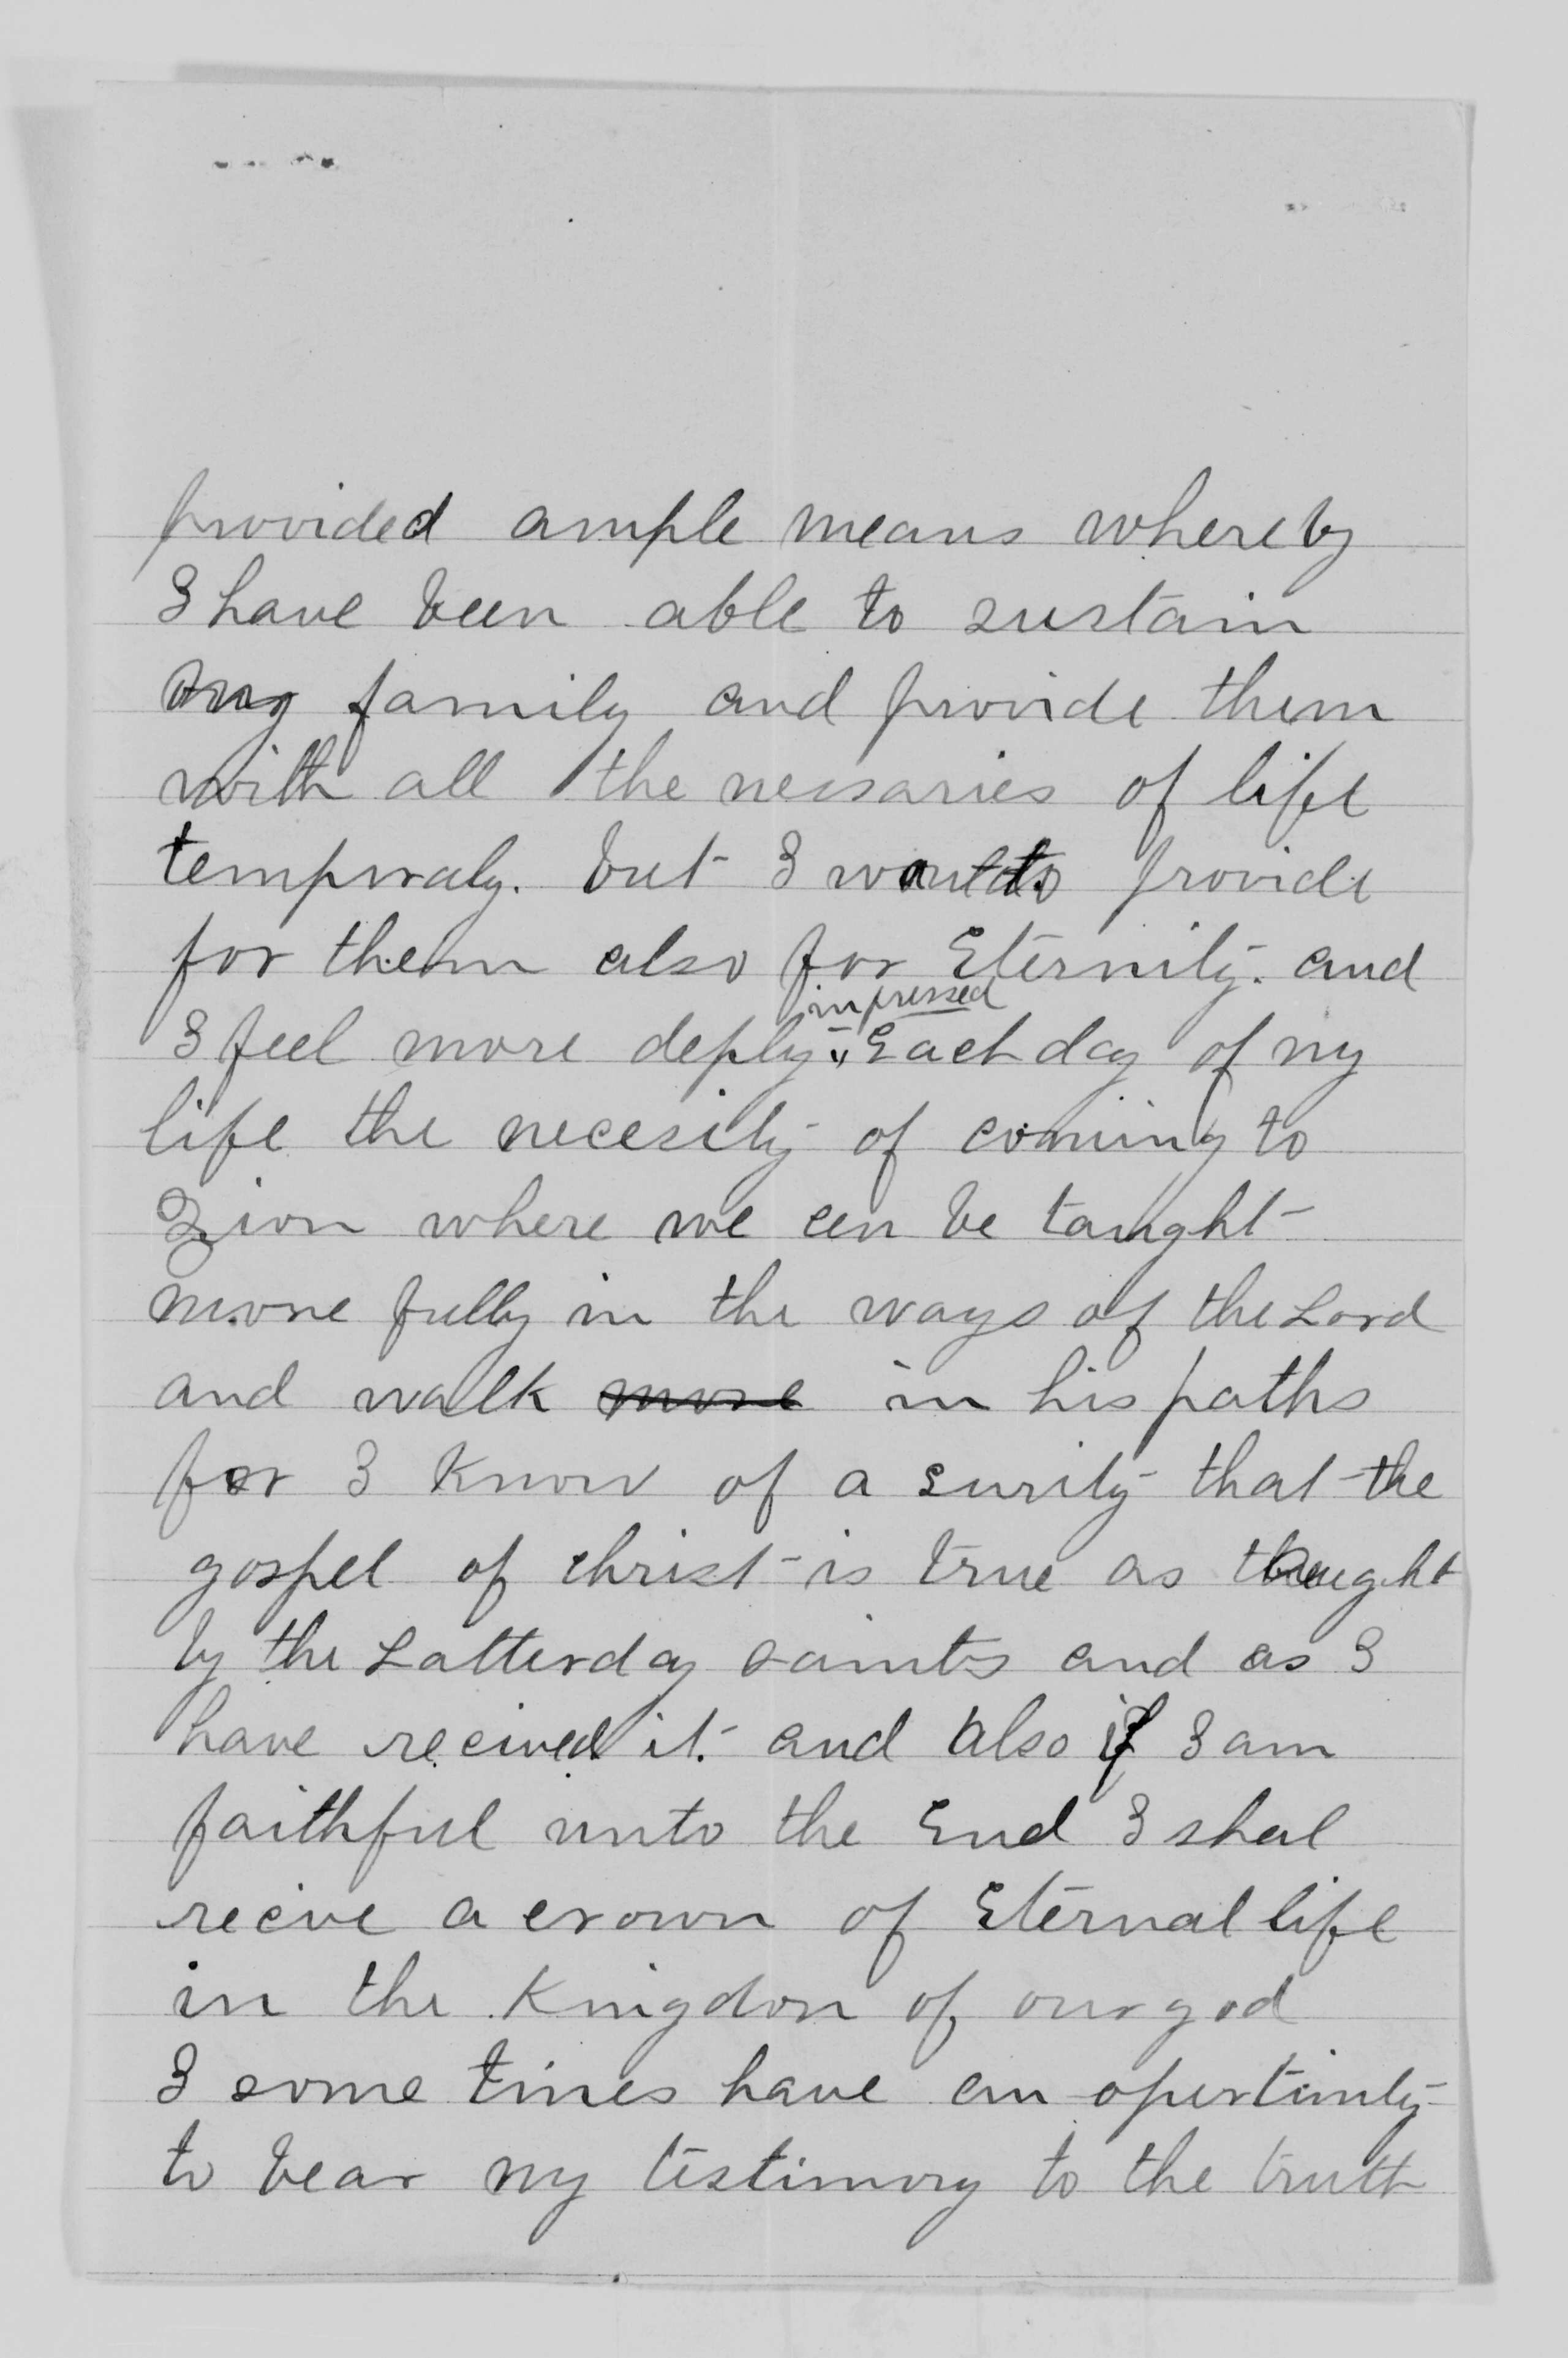 provided ample means whereby
I have been able to sustain
my family and provide them
with all the nessaries of life
temporaly. but I want to provide
for them also for Eternity. and
impressed
I feel more deply " Each day of my
life the necesity of coming to
Zion where we can be taught
more fully in the ways of the Lord
and walk more in his paths
for I know of a surity that the
gospel of christ is true as taught
by the Latterday saints and as I
have recived it. and also if I am
faithful unto the End I shal
recive a crown of Eternal life
in the Kingdon of our god
I some times have an opertunity
to bear my testimony to the truth